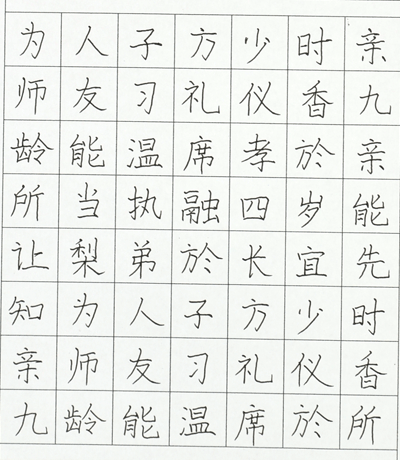 为人子方少时亲
师友习礼仪香九
龄能温席孝於亲
所当执融四岁能
让梨弟於长宜先
知为人子方少时
亲师友习礼仪香
九龄能温席於所